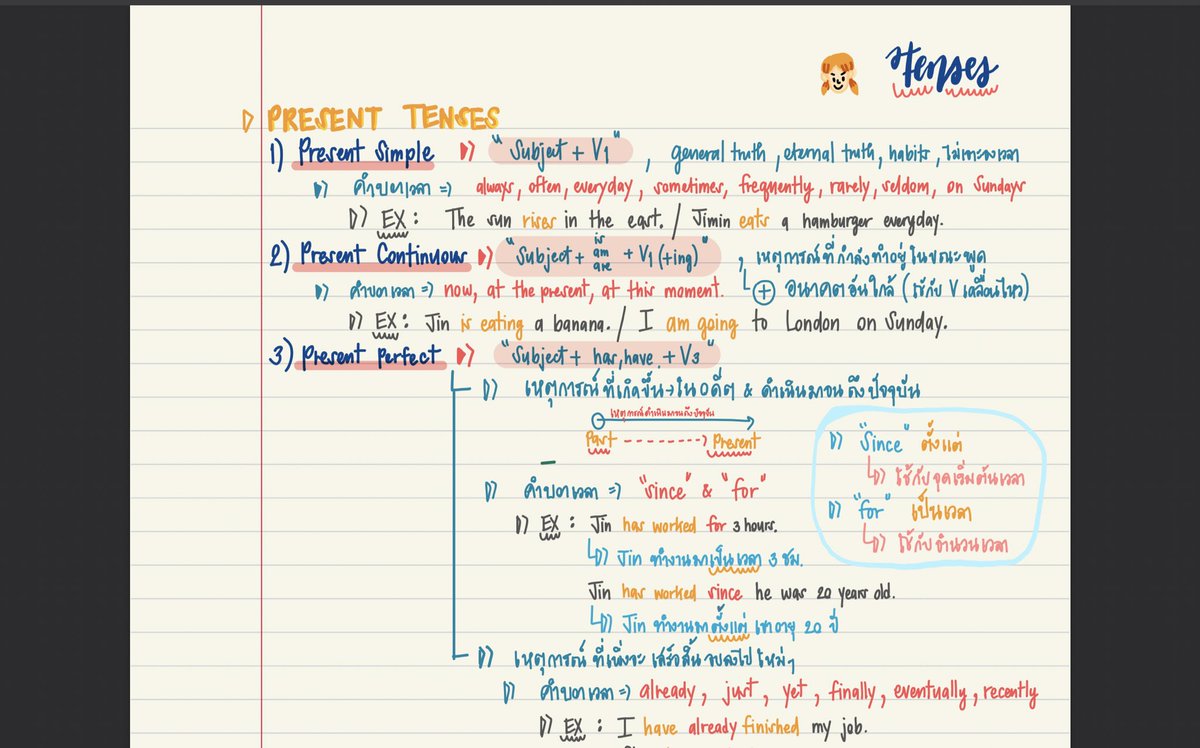 Tenses
PRESENT TENSES
1) Present Simple "Subject + V1" , general truth, eternal truth, habits, ไม่เจาะจงเวลา
คำบอกเวลา => always, often, everyday, sometimes, frequently, rarely, seldom, on Sundays
EX : The sun rises in the east. / Jimin eats a hamburger everyday.
2) Present Continuous "Subject + is am are + V1 (+ing)" , เหตุการณ์ที่กำลังทำอยู่ในขณะพูด
คำบอกเวลา => now, at the present, at this moment. + อนาคตอันใกล้ (ใช้กับ V เคลื่อนไหว)
EX : Jin is eating a banana. / I am going to London on Sunday.
3) Present Perfect "Subject + has, have + V3"
เหตุการณ์ที่เกิดขึ้น → ในอดีต & ดำเนินมาจนถึงปัจจุบัน
เหตุการณ์ดำเนินมาจนถึงปัจจุบัน
Past -------> Present
"since" ตั้งแต่
ใช้กับจุดเริ่มต้นเวลา
"for" เป็นเวลา
ใช้กับจำนวนเวลา
คำบอกเวลา => "since" & "for"
EX : Jin has worked for 3 hours.
Jin ทำงานมาเป็นเวลา 3 ชม.
Jin has worked since he was 20 years old.
Jin ทำงานมาตั้งแต่เขาอายุ 20 ปี
เหตุการณ์ที่เพิ่งจะเสร็จสิ้นจบลงไปใหม่ๆ
คำบอกเวลา => already, just, yet, finally, eventually, recently
EX : I have already finished my job.